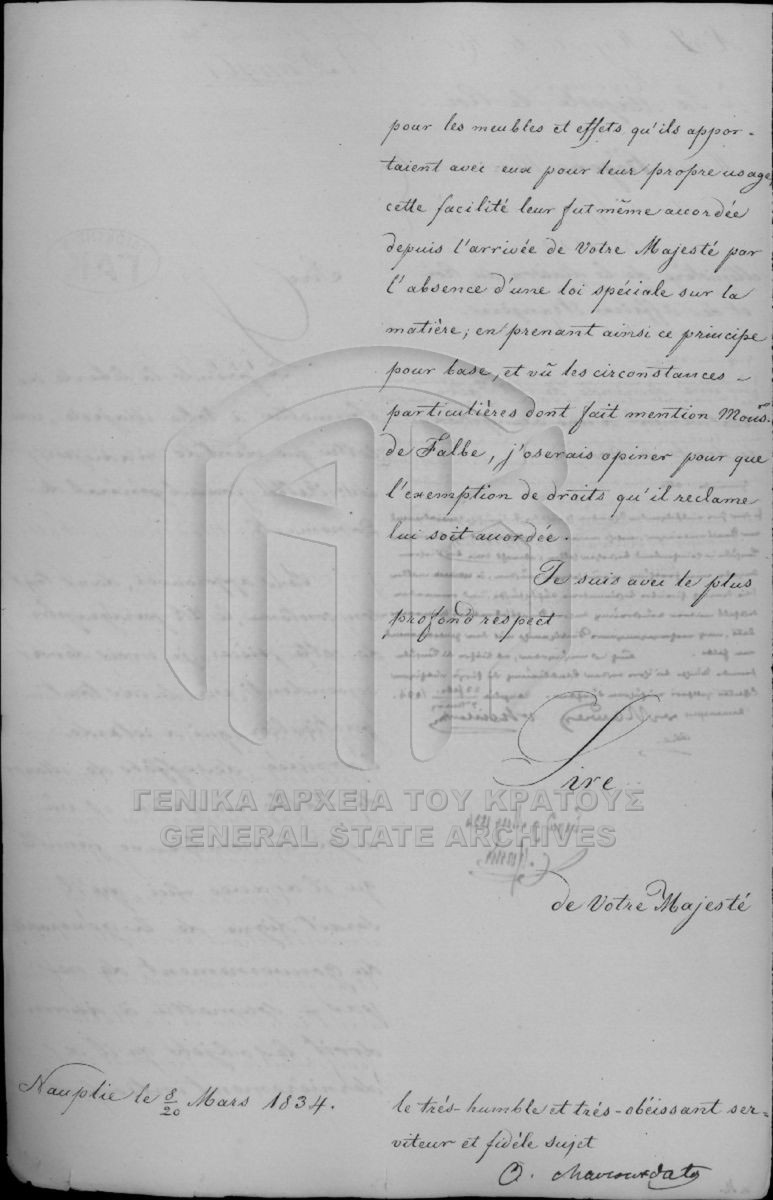 pour les meubles et effets qu'ils appor-
taient avec eux pour leur propre usage,
cette facilité leur fut même accordée
depuis l'arrivée de Votre Majesté par
l'absence d'une loi spéciale sur la
matière; en prenant ainsi ce principe
pour base, et vû les circonstances
particulières dont fait mention Mons.
de Falbe, j'oserais opiner pour que
l'exemption de droits qu'il reclame
lui soit accordée.
Je suis avec le plus
profond respect
Sire
ΓΕΝΙΚΑ ΑΡΧΕΙΑ ΤΟΥ ΚΡΑΤΟΥΣ
GENERAL STATE ARCHIVES
de Votre Majesté
Nauplie le 8/20 Mars 1834.
le trés-humble et trés-obéissant ser-
viteur et fidéle sujet